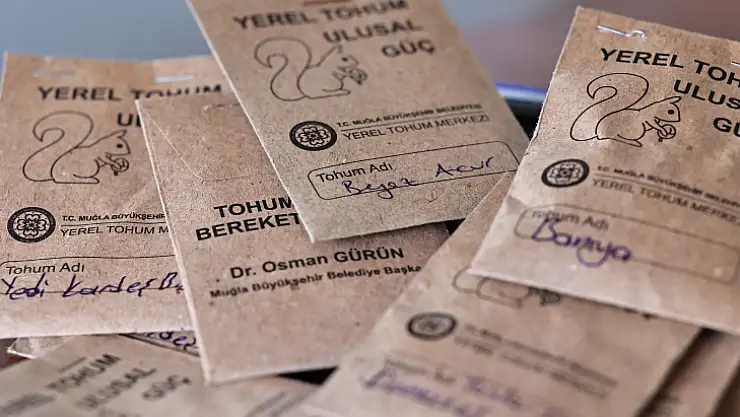 YEREL TOHUM
ULUSAL
GÜÇ
T.C. MUĞLA BÜYÜKŞEHİR BELEDİYESİ
YEREL TOHUM MERKEZİ
Tohum Adı
Beyaz Acur
YEREL TOHUM
UL
T.C. MUĞLA BÜYÜKŞEHİR
YEREL TOHUM M
Tohum Adı
Yedi Kardeş B
TOHUM
BEREKET
Dr. Osman GÜRÜN
Muğla Büyükşehir Belediye Başka
YEREL TOH
ULUSA
GÜ
T.C. MUĞLA BÜYÜKŞEHİR BELEDİYES
YEREL TOHUM MERKEZİ
Tohum Adı
Bamya
YEREL TOHUM
ULUSAL
GÜÇ